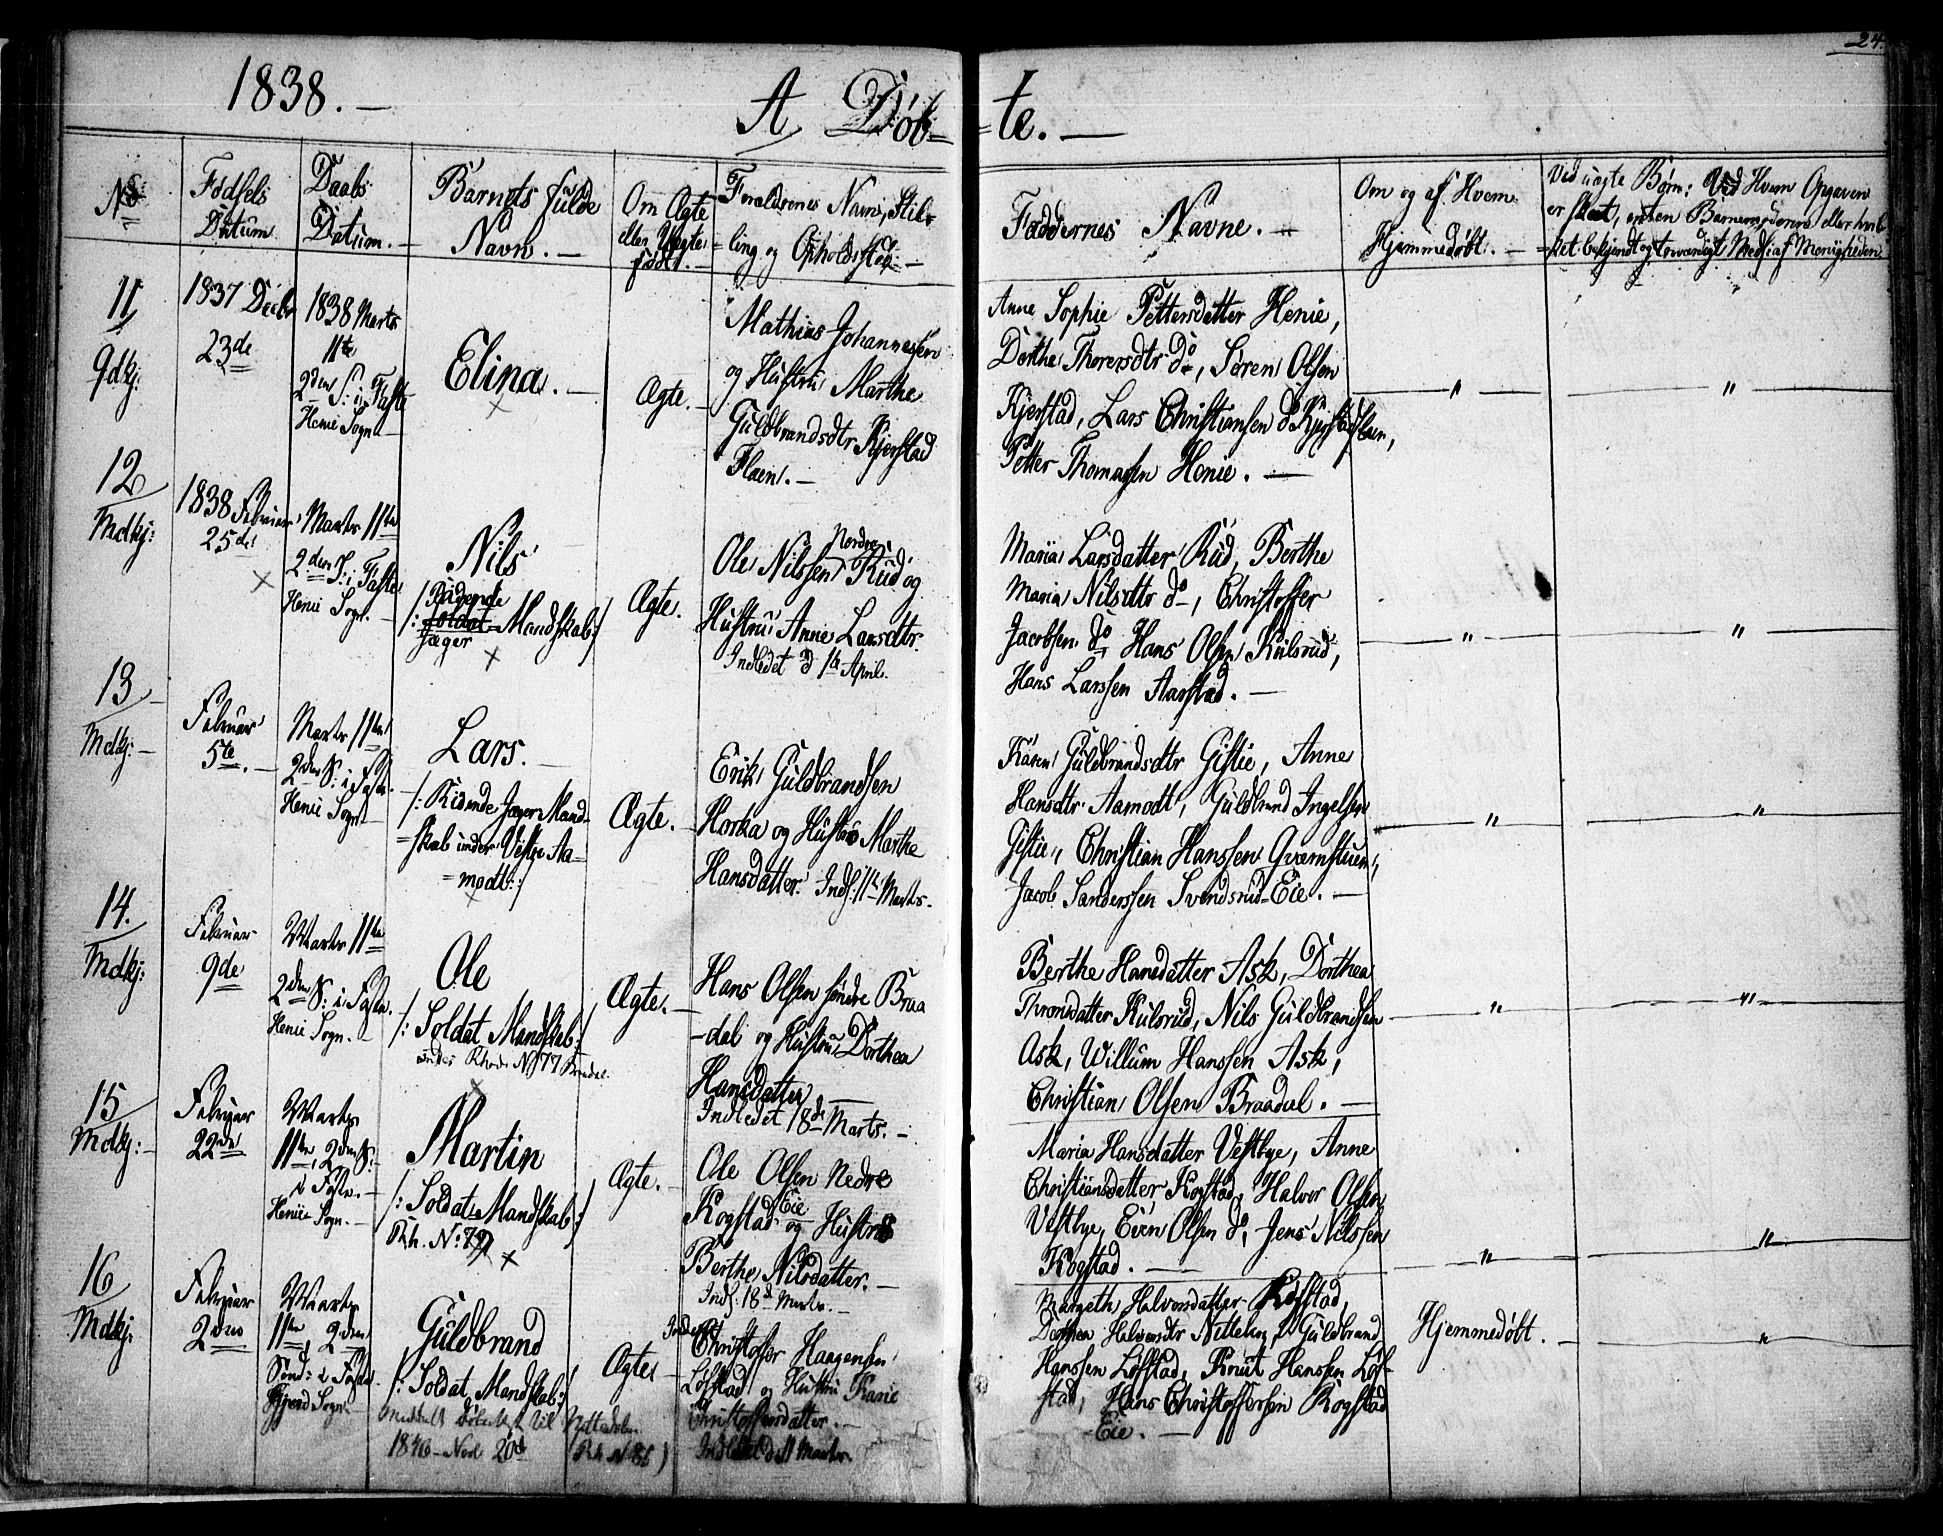 24.
1838. —
A Døb=
=te. —
No
Fødsels
Datum
Daabs
Datum. —
Barnets fulde
Navn. —
Om Ægte
eller Uægte
født. —
Forældrenes Navn, Stil=
ling og Opholdssted. —
Faddernes Navne. —
Om og af Hvem
Hjemmedøbt. —
Ved uægte Børn: Ved Hvem Opgaven
er skeet, enten Barnemoderen eller
=det bekjendt og troværdigt Medl: af Menigheden
11
Qdkj:
1837 Decbr
23de
1838 Marts
11te
2den S: i Faste
Henie Sogn
Elina. —
×
Ægte. —
Mathias Johannessen
og Hustru Marthe
Guldbrandsdtr Kjerstad
Flaen. —
Anne Sophie Pettersdatter Henie,
Dorthe Thorersdtr do, Søren Olsen
Kjerstad, Lars Christiansen
Petter Thomassen Henie. —
"
"
12
Mdkj:
1838 Februar
25de
×
Marts 11te
2den S: i Faste
Henie Sogn. —
Nils
/: Ridende
Soldat Mandskab :/
Jæger
×
Ægte.
Nordre
Ole Nilssen Rud og
Hustru Anne Larsdtr.
Indledet d 1te April.
Maria Larsdatter Rud, Berthe
Maria Nilsdtr do, Christoffer
Jacobsen do Hans Olsen Kulsrud,
Hans Larssen Aarstad. —
"
"
13
Mdkj: —
Februar
5te. —
Marts 11te
2den S: i Faste.
Henie Sogn
Lars. —
/: Ridende Jæger Mand=
=skab under Vestre Aa=
=modt :/
×
Ægte. —
Erik Guldbrandsen
Horka og Hustru Marthe
Hansdatter. Indl. 11te Marts. —
Karen Guldbrandsdtr Gistie, Anne
Hansdtr Aamodt, Guldbrand Ingelsen
Gistie, Christian Hanssen Qværnstuen,
Jacob Sanderssen Svendsrud-Eie. —
"
"
14.
Mdkj:
Februar
9de
Marts 11te
2den S: i Faste.
Henie Sogn. —
Ole
/: Soldat Mandskab :/
under Rhode No 77 Braadal.
×
Ægte. —
Hans Olsen søndre Braa
=dal og Hustru Dorthea
Hansdatter
Indledet 18de Marts. —
Berthe Hansdatter Ask, Dorthea
Thronsdatter Kulsrud, Nils Guldbrandsen
Ask, Willum Hanssen Ask,
Christian Olsen Braadal. —
"
"
15
Mdkj: —
Februar
22de
Marts
11te, 2den S:
i Faste. —
Henie Sogn. —
Martin
/: Soldat Mandskab :/
Rh. No 79
×
Ægte. —
Ole Olsen Nedre
Kogstad Eie og Hustru
Berthe Nilsdatter. —
Indl. 18de Marts. —
Maria Hansdatter Vestbye, Anne
Christiansdatter Kogstad, Halvor Olsen
Vestbye, Even Olsen do, Jens Nilssen
Kogstad. —
"
"
16
Mdkj:
Februar
2den
Marts
11te, 2den
Sønd: i Faste.
Sogn. —
Guldbrand
/: Soldat Mandskab :/
Meddelt
1846 - 20de
(Rh. No 86)
Ægte
Christoffer Haagensen
Løfstad og Hustru Karie
Christoffersdatter. —
Indledet d 11 Marts.
Margeth Halvorsdatter Kogstad,
Dorthea Halvorsdtr Nitteberg, Guldbrand
Hanssen Løfstad, Knut Hanssen Løf=
stad, Hans Christoffersen Kogstad
Eie. —
Hjemmedøbt. —
"